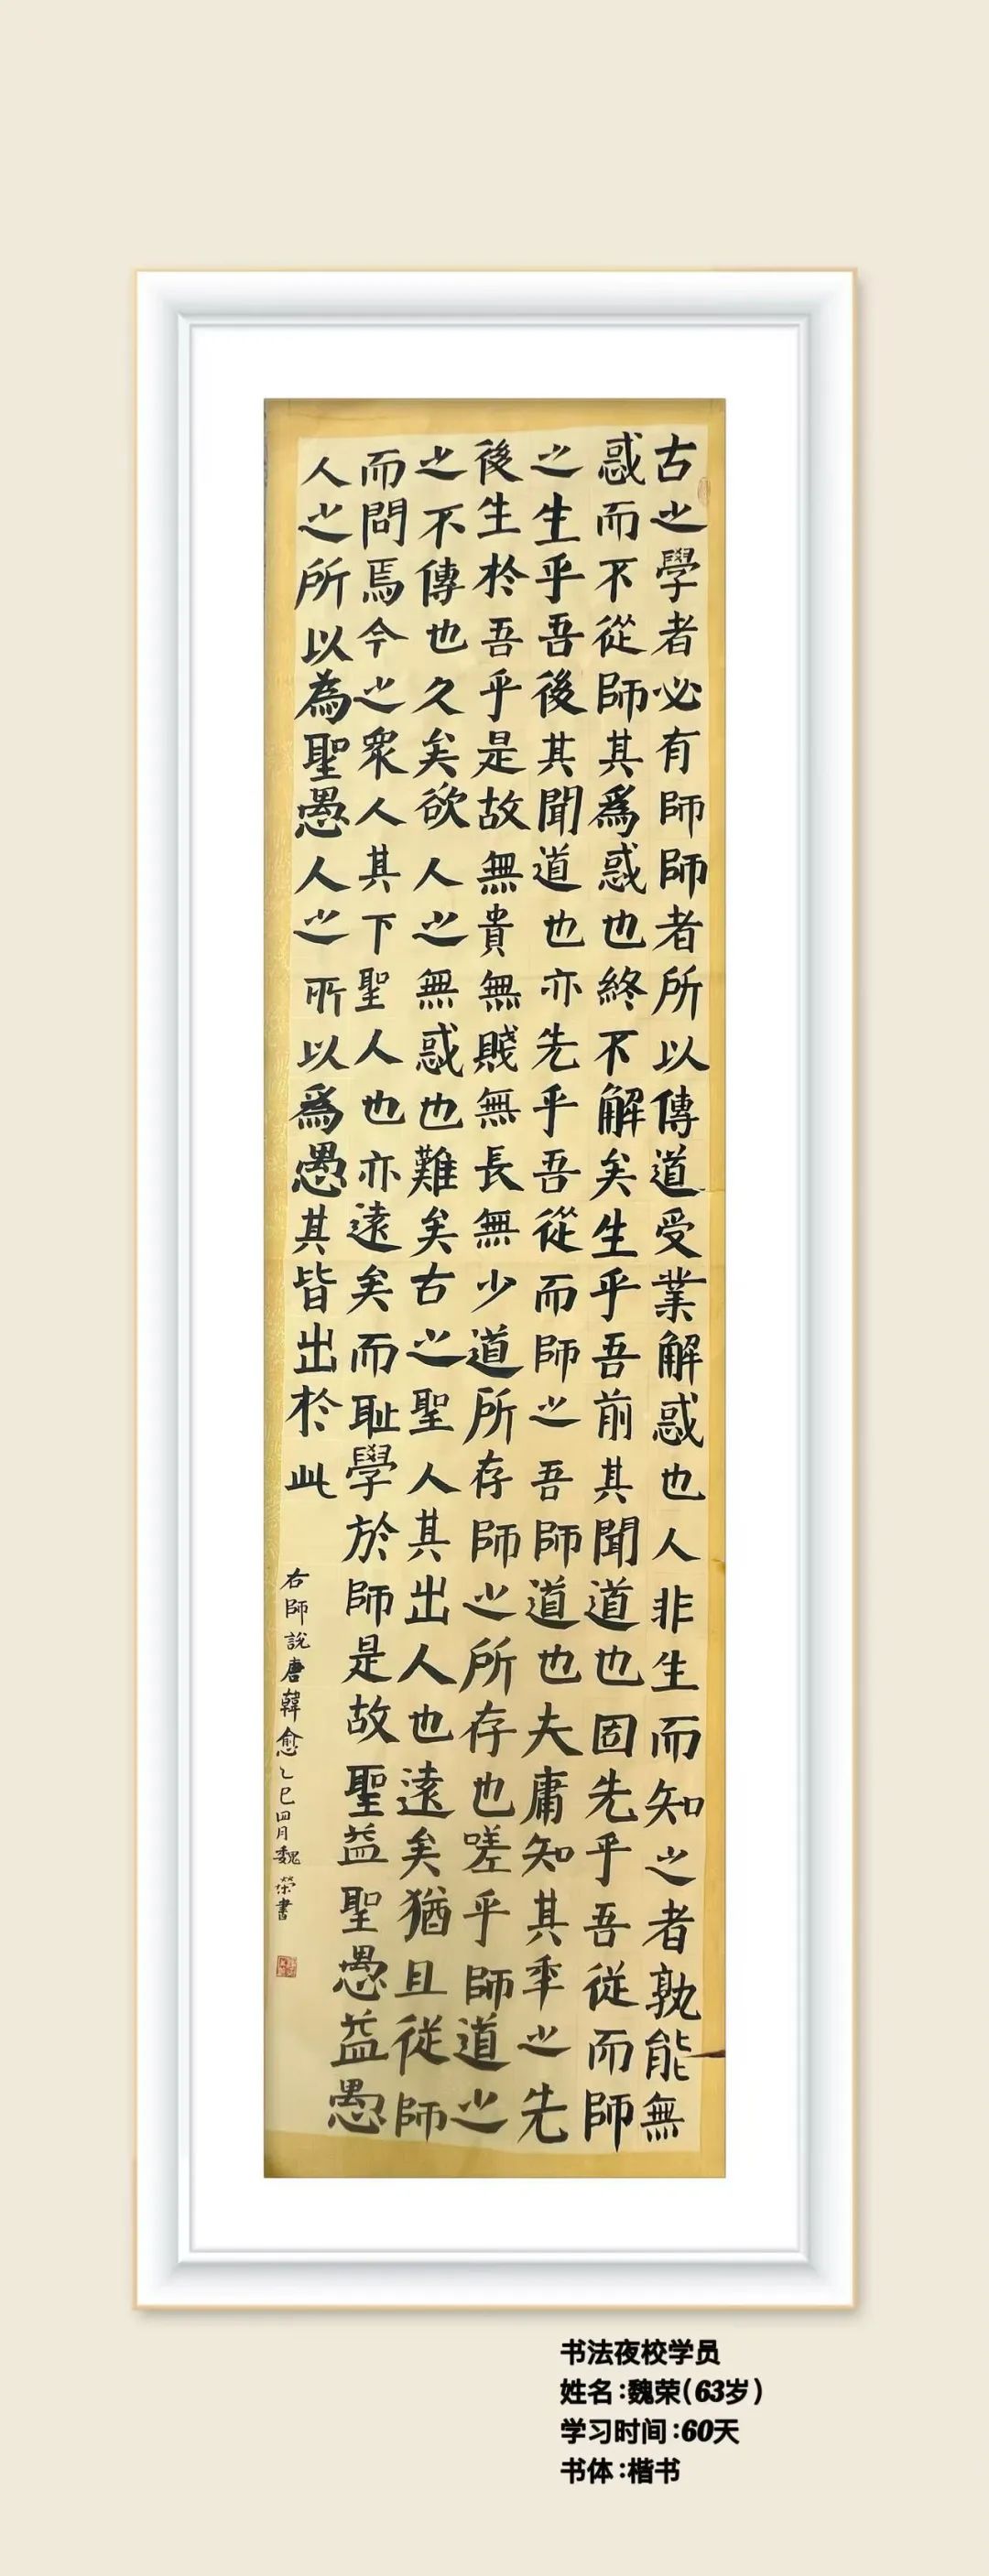 古之學者必有師師者所以傳道受業解惑也人非生而知之者孰能無
惑而不從師其爲惑也終不解矣生乎吾前其聞道也固先乎吾從而師
之生乎吾後其聞道也亦先乎吾從而師之吾師道也夫庸知其年之先
後生於吾乎是故無貴無賤無長無少道所存師之所存也嗟乎師道之
之不傳也久矣欲人之無惑也難矣古之聖人其出人也遠矣猶且從師
而問焉今之衆人其下聖人也亦遠矣而耻學於師是故聖益聖愚益愚
人之所以為聖愚人之所以爲愚其皆出於此
右師說唐韓愈乙巳四月魏榮書
书法夜校学员
姓名:魏荣(63岁)
学习时间:60天
书体:楷书